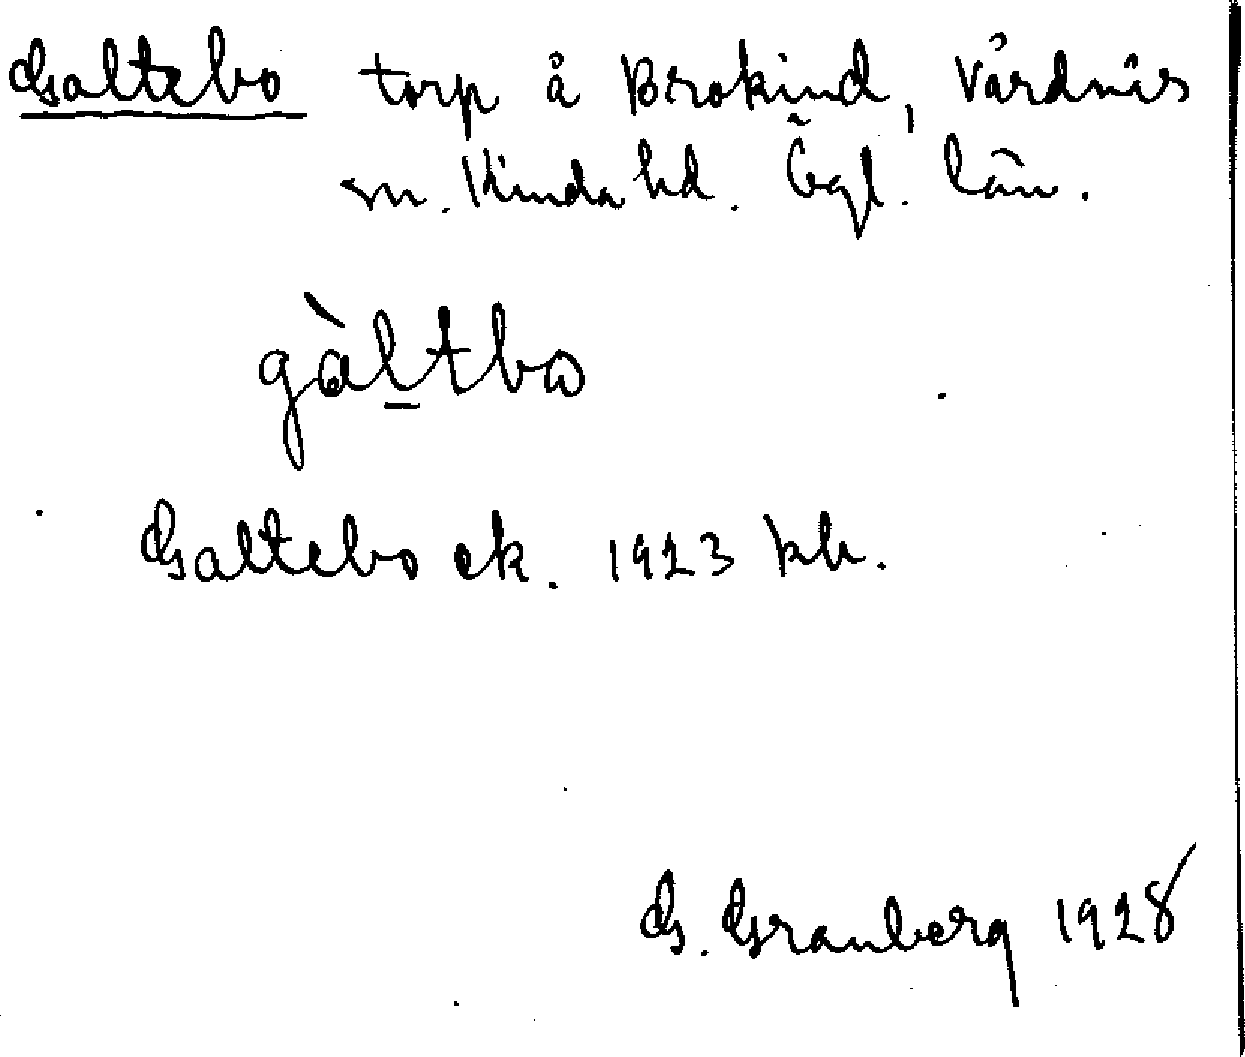 Galtebo torp å Brokind, Vårdnäs
sn. Kinda hd. Ögl. län.
gàl̲tbω
Galtebo ek. 1923 kb.
G. Granberg 1928